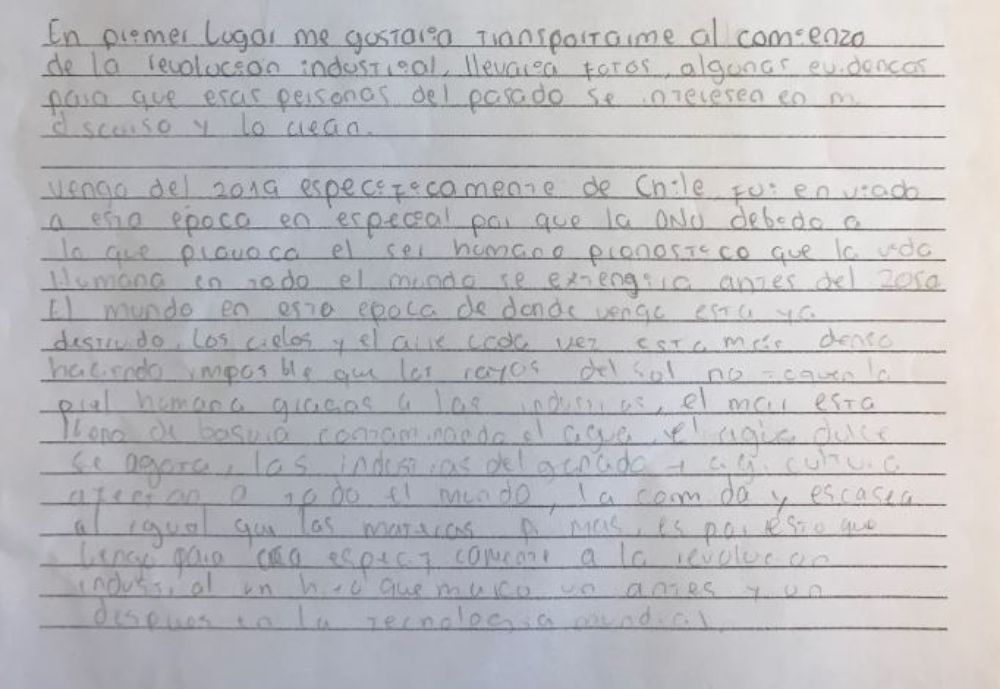 En primer lugar me gustaria transportarme al comienzo
de la revolucion industrial, llevaria fotos, algunas evidencas
para que esas personas del pasado se interesen en mi
discurso y lo crean.
vengo del 2019 especificamente de Chile fui enviado
a esta epoca en especial por que la ONU debedo a
lo que provoca el ser humano pronostico que la vida
Humana en todo el mundo se extengiria antes del 2050
El mundo en esta epoca de donde vengo esta ya
destruido, los cielos y el aire cada vez esta mas denso
haciendo imposible que los rayos del sol no toquen la
piel humana gracias a las industrias, el mar esta
lleno de basura contaminando el agua, el agua dulce
se agota, las industrias del ganado y agricultura
afectan a todo el mundo, la comida y escasea
al igual que las materias primas, es por esto que
vengo para a la revolucion
industrial un hito que marco un antes y un
despues en la tecnologia mundial.